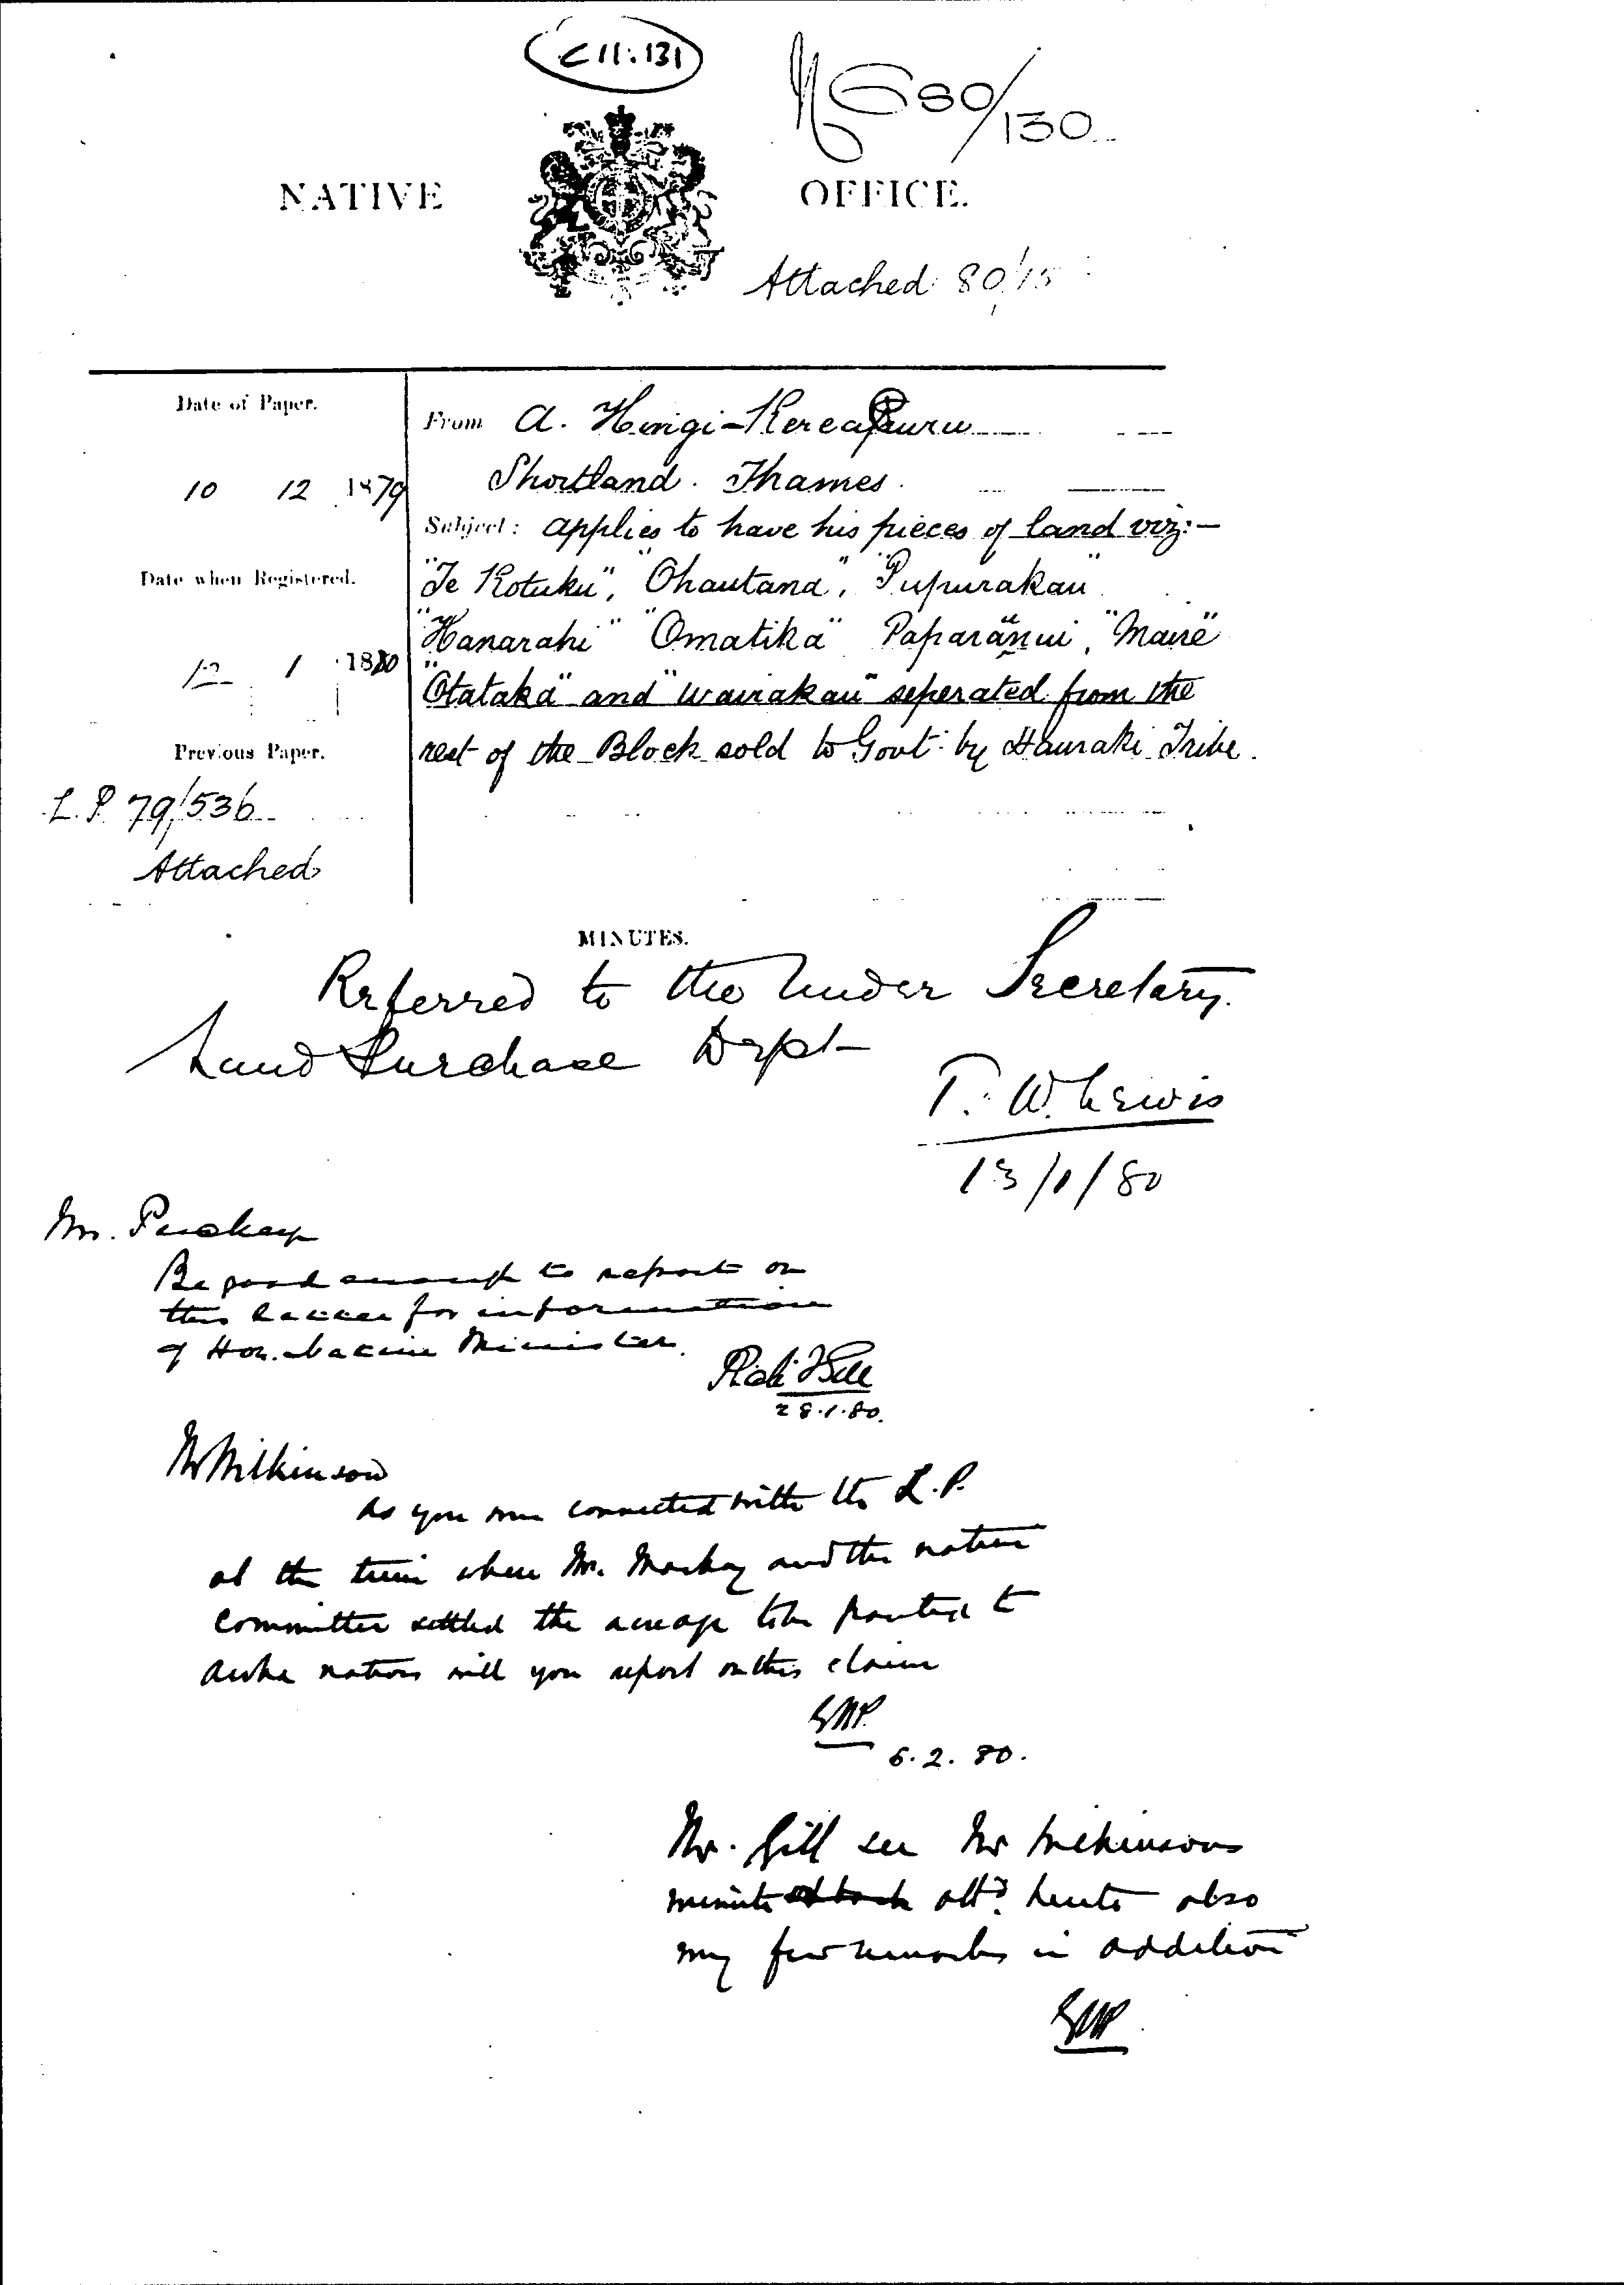 C 11:131
NG 80/130
NATIVE OFFICE.
Attached 80/15
Date of Paper.
10 12 1879
Date when Registered.
12 1 1880
Previous Paper.
L.P. 79/536
Attached
From A. Hongi-Kereapuru
Shortland. Thames.
Subject: applies to have his pieces of land viz:—
"Te Kotuku", "Ohautana", "Pupurakau"
"Hanarahi" "Omatika" Paparanui, "Maire"
"Otataka" and "Wairakau" seperated from the
rest of the Block sold to Govt. by Hauraki Tribe.
MINUTES.
Referred to the Under Secretary.
Land Purchase Dept
T. W. Lewis
13/1/80
Mr. Puckey
Be good enough to report on
this letter for information
of Hon. Native Minister.
Richd Gill
28.1.80.
Mr Wilkinson
As you were connected with the L.P.
at the time when Mr. Mackay and the native
Committee settled the acreage to be granted to
native will you report on this claim
EWP.
6.2.80.
Mr. Gill see Mr Wilkinsons
minute attd. hereto also
my few remarks in addition
EWP